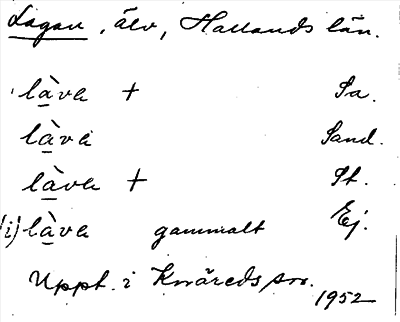 Lagan, älv, Hallands län.
la̠̒va + Sa.
la̠̒va Sand.
la̠̒va + St.
(i) la̠̒va gammalt Ej.
Uppt. i Knäreds sn.
1952